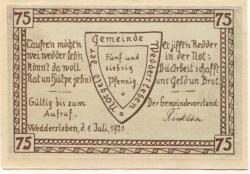 75 75
Notgeld der Gemeinde Wedderleben
Fünf und
siebzig
Pfennig
Laufre'n mödt'n
wei wedder lebn
Könn't da woll
Rat un Hülpe jebn
er jifft'n Redder
in der Not:
Da Arbeit schafft
uns Geld un Brot
Gültig bis zum
Aufruf.
Der Gemeindevorstand:
Weddersleben, d. 1 Juli, 1921
75 75